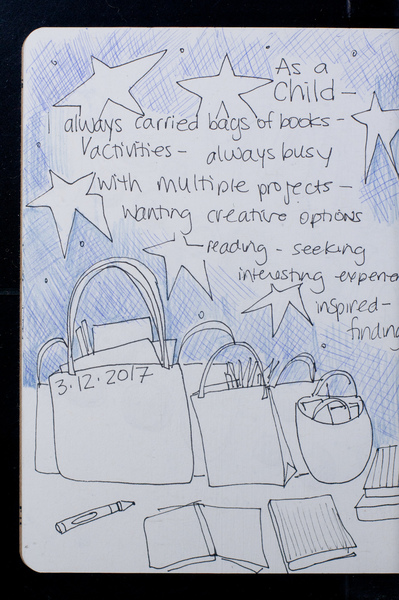 As a
Child-
I always carried bags of books -
& activities - always busy
with multiple projects -
wanting creative options
reading - seeking
interesting
inspired -
finding
3.12.2017